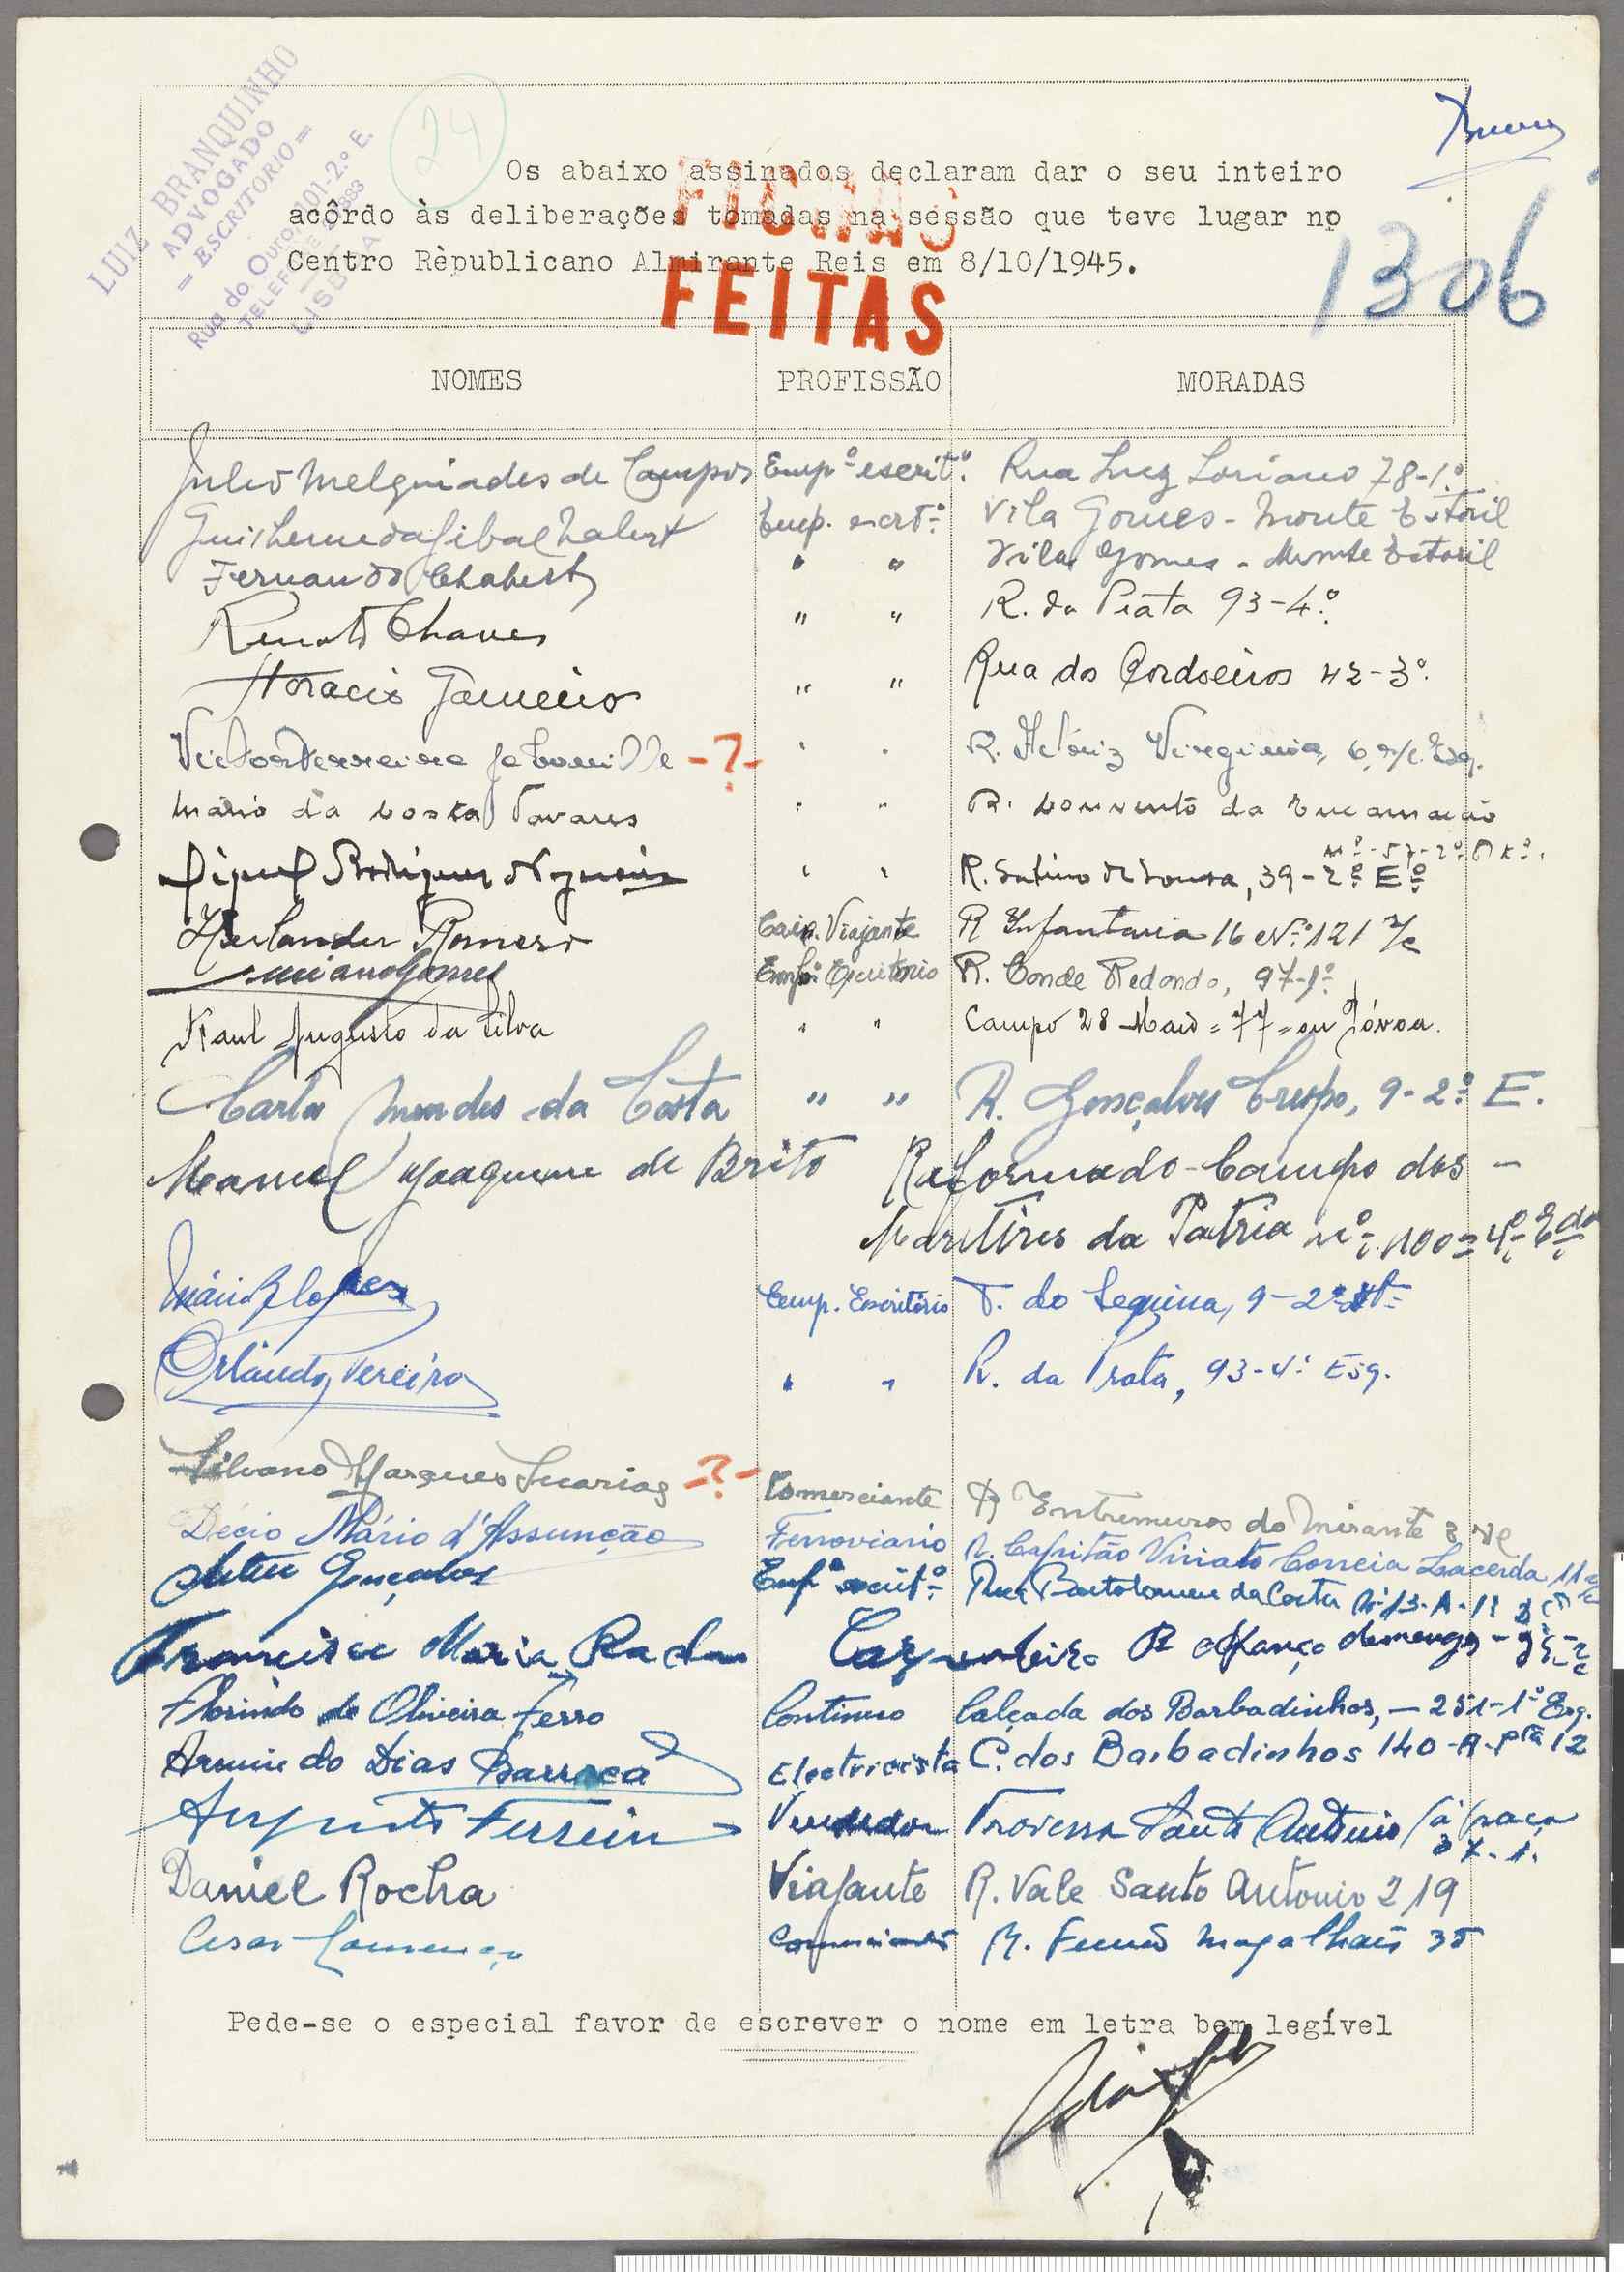 LUIZ BRANQUINHO
ADVOGADO
= ESCRITÓRIO =
Rua do Ouro, 101-2.º E.
TELEF
LISBOA
24
1306
Os abaixo assinados declaram dar o seu inteiro
acôrdo às deliberações tomadas na sessão que teve lugar no
Centro Rèpublicano Almirante Reis em 8/10/1945.
FICHAS
FEITAS
NOMES PROFISSÃO MORADAS
Julio Melquiades de Campos Empº escritº. Rua Luz Soriano 78-1.º
Guilherme da Silva Chabert Emp. escrtº Vila Gomes - Monte Estoril
Fernando Chabert " " Vila Gomes - Monte Estoril
Renato Chaves " " R. da Prata 93-4.º
Horacio Gameiro " " Rua dos Cordoeiros 42-3º.
Victor Ferreira -?- " " R. Virginia, 6, r/c. Esq.
Mário da Costa Tavares " " R. Convento da Encarnação
nº - 57-2º
Miguel Rodrigues " " R. de Sousa, 39-2º Eº
Herlander Romero Caix. Viajante R Infantaria 16 Nº 121 r/c
Luciano Gomes Empº Escritorio R. Conde Redondo, 97-1º
Raul Augusto da Silva " " Campo 28 Maio = 77 = Póvoa.
Carlos Mendes da Costa " " R. Gonçalves Crespo, 9-2º E.
Manuel Joaquim de Brito Reformado - Campo dos -
Martires da Patria nº 100 = 4º Edo
Mário Lopes Emp. Escritório T. do Sequeiro, 9-2º
Orlando Pereira " " R. da Prata, 93-4º Esq.
Silvano Marques -?- Comerciante R Entremuros do Mirante 3
Décio Mário d'Assunção Ferroviario R. Capitão Viriato Correia Lacerda 11
Artur Gonçalves Empº escritº Rua Bartolomeu da Costa Nº 13-A-1º
Francisco Maria Carpinteiro R Afonço Domengos
Florindo de Oliveira Ferro Continuo Calçada dos Barbadinhos, - 251-1º Esq.
Armindo Dias Barroca Electricista C. dos Barbadinhos 140-A-pta 12
Augusto Ferreira Vendedor Travessa Santo Antonio (à Graça
37-1.
Daniel Rocha Viajante R. Vale Santo Antonio 219
Cesar Lourenço Comerciante R. Fernão Magalhais 35
Pede-se o especial favor de escrever o nome em letra bem legível